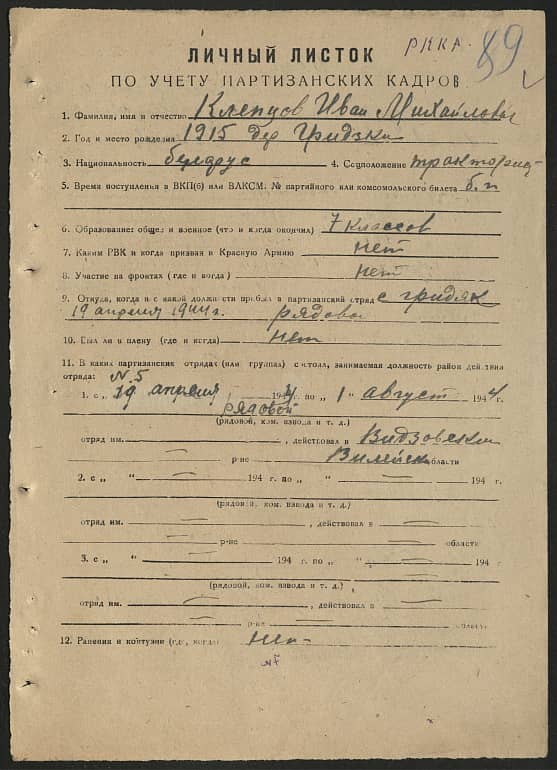 РККА
89
ЛИЧНЫЙ ЛИСТОК
ПО УЧЕТУ ПАРТИЗАНСКИХ КАДРОВ
1. Фамилия, имя и отчество Клепцов Иван Михайлович
2. Год и место рождения 1915 дер Гридзки
3. Национальность беларус 4. Соцположение
5. Время поступления в ВКП(б) или ВЛКСМ. № партийного или комсомольского билета б.п
6. Образование: общее и военное (что и когда окончил) 7 классов
7. Каким РВК и когда призван в Красную Армию нет
8. Участие на фронтах (где и когда) нет
9. Откуда, когда и с какой должности прибыл в партизанский отряд с
19 апреля 1944 г. рядовой
10. Был ли в плену (где и когда) нет
11. В каких партизанских отрядах (или группах) состоял, занимаемая должность район действия
отряда: N. 5
1. с „ 19 апреля 1944 г. по „ 1 " август 194 4 г.
рядовой
(рядовой, ком. взвода и т. д.)
отряд им. — , действовал в Видзовском
— р-не Вилейск области
2. с „ — " — 194 г. по „ — " — 194 г.
(рядовой, ком. взвода и т. д.)
отряд им. — , действовал в —
— р-не — области
3. с „ " — 194 г. по „ " — 194 г
(рядовой, ком. взвода и т. д.)
отряд им. — , действовал в —
— р-не — области
12. Ранения и контузии (где, когда) нет
N 7